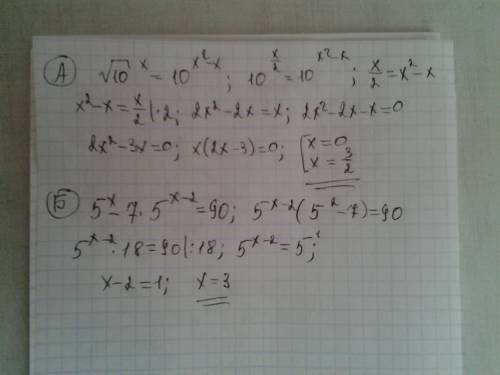 А √10^x = 10^(x²-x); 10^(x/2) = 10^(x²-x); x/2 = x²-x
x²-x = x/2 |·2; 2x²-2x=x; 2x²-2x-x=0
2x²-3x=0; x(2x-3)=0; [x=0
x=3/2
Б 5^x - 7·5^(x-2) = 90; 5^(x-2)(5²-7)=90
5^(x-2)·18=90|:18; 5^(x-2)=5^1;
x-2=1; x=3